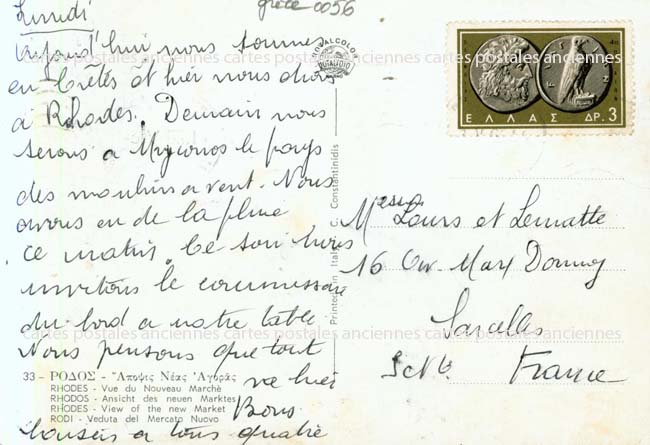 Lundi
grèce 0056
Aujourd'hui nous sommes
en Crètes et hier nous étions
à Rhodes. Demain nous
serons a Myconos le pays
des moulins a vent. Nous
avons eu de la pluie
ce matin. Ce soir nous
invitons le commissaire
du bord a notre table.
Nous pensons que tout
va bien
Bons
baisers a tous quatre
33 - ΡΟΔΟΣ - Ἄποψις Νέας Ἀγορᾶς
RHODES - Vue du Nouveau Marchè
RHODOS - Ansicht des neuen Marktes
RHODES - View of the new Market
RODI - Veduta del Mercato Nuovo
ROYALCOLOR
Printed in Italy C. Constantinidis
ΕΛΛΑΣ ΔΡ. 3
Louis et Lematte
16 Max Dormoy
Sarcelles
France
cartes postales anciennes cartes postales anciennes cartes postales anciennes
cartes postales anciennes cartes postales anciennes cartes postales anciennes